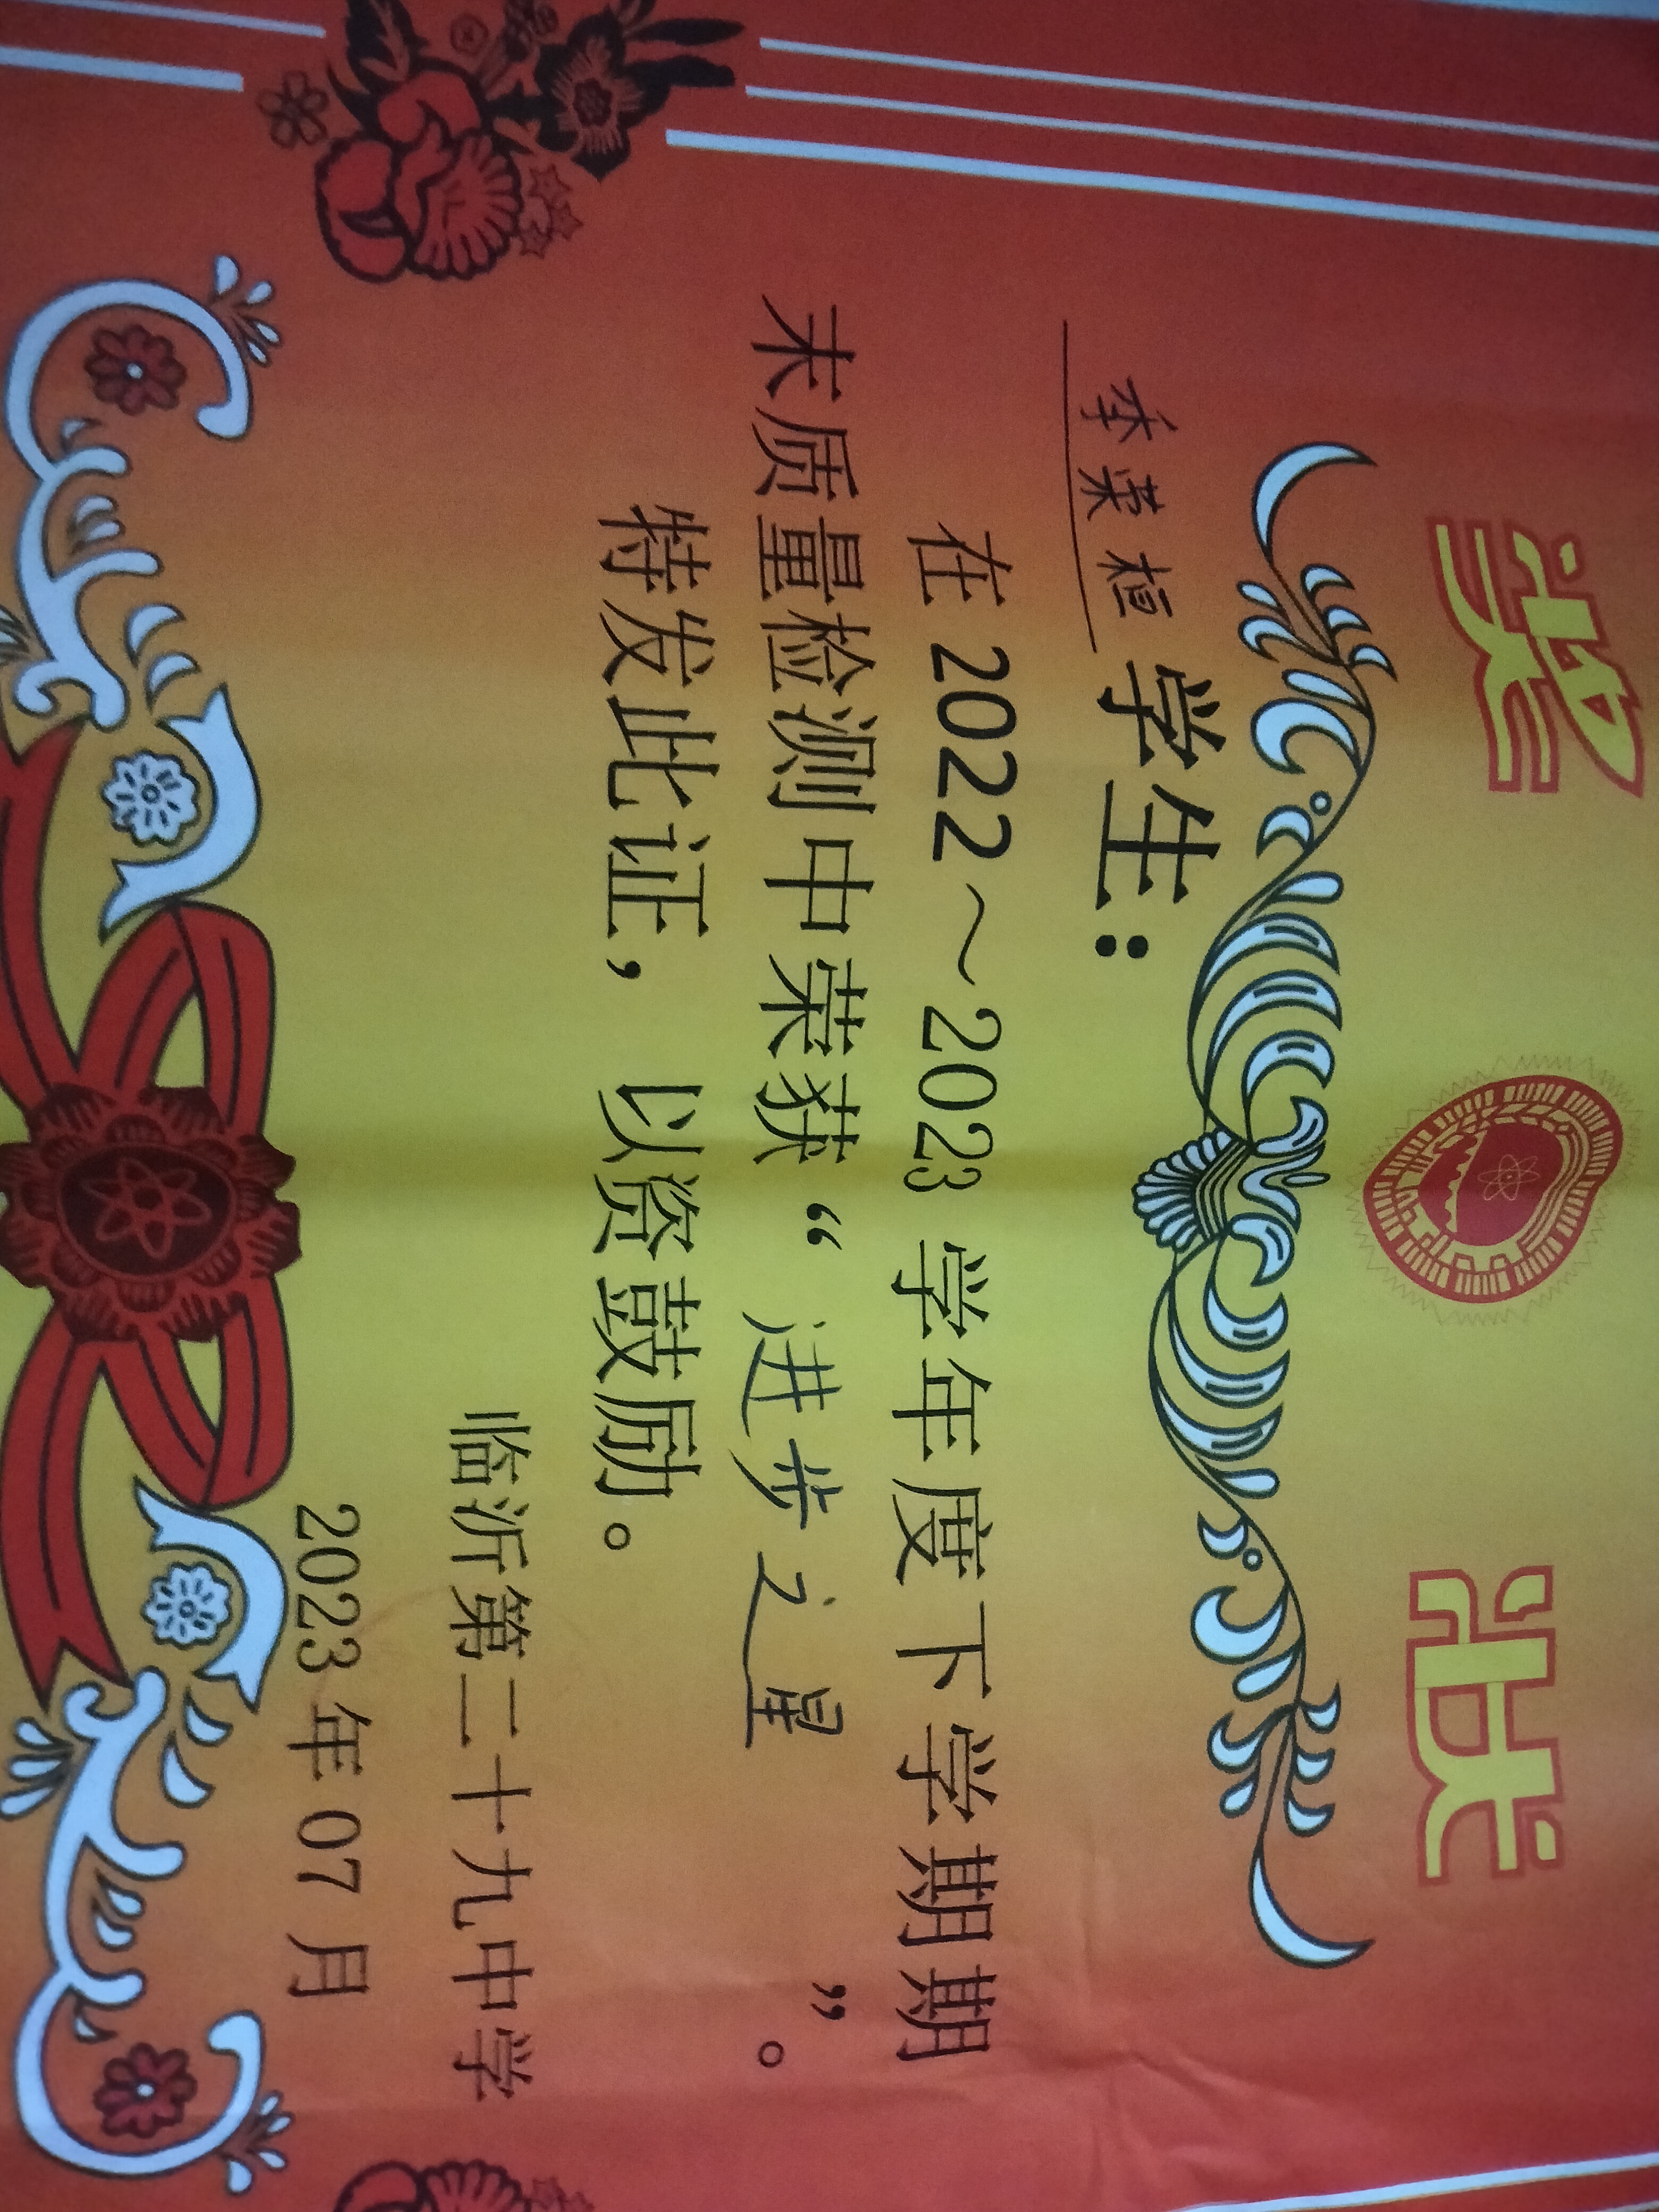 奖 状
李荣桓 学生：
在 2022～2023 学年度下学期期
末质量检测中荣获“ 进步之星 ”。
特发此证，以资鼓励。
临沂第二十九中学
2023 年 07 月